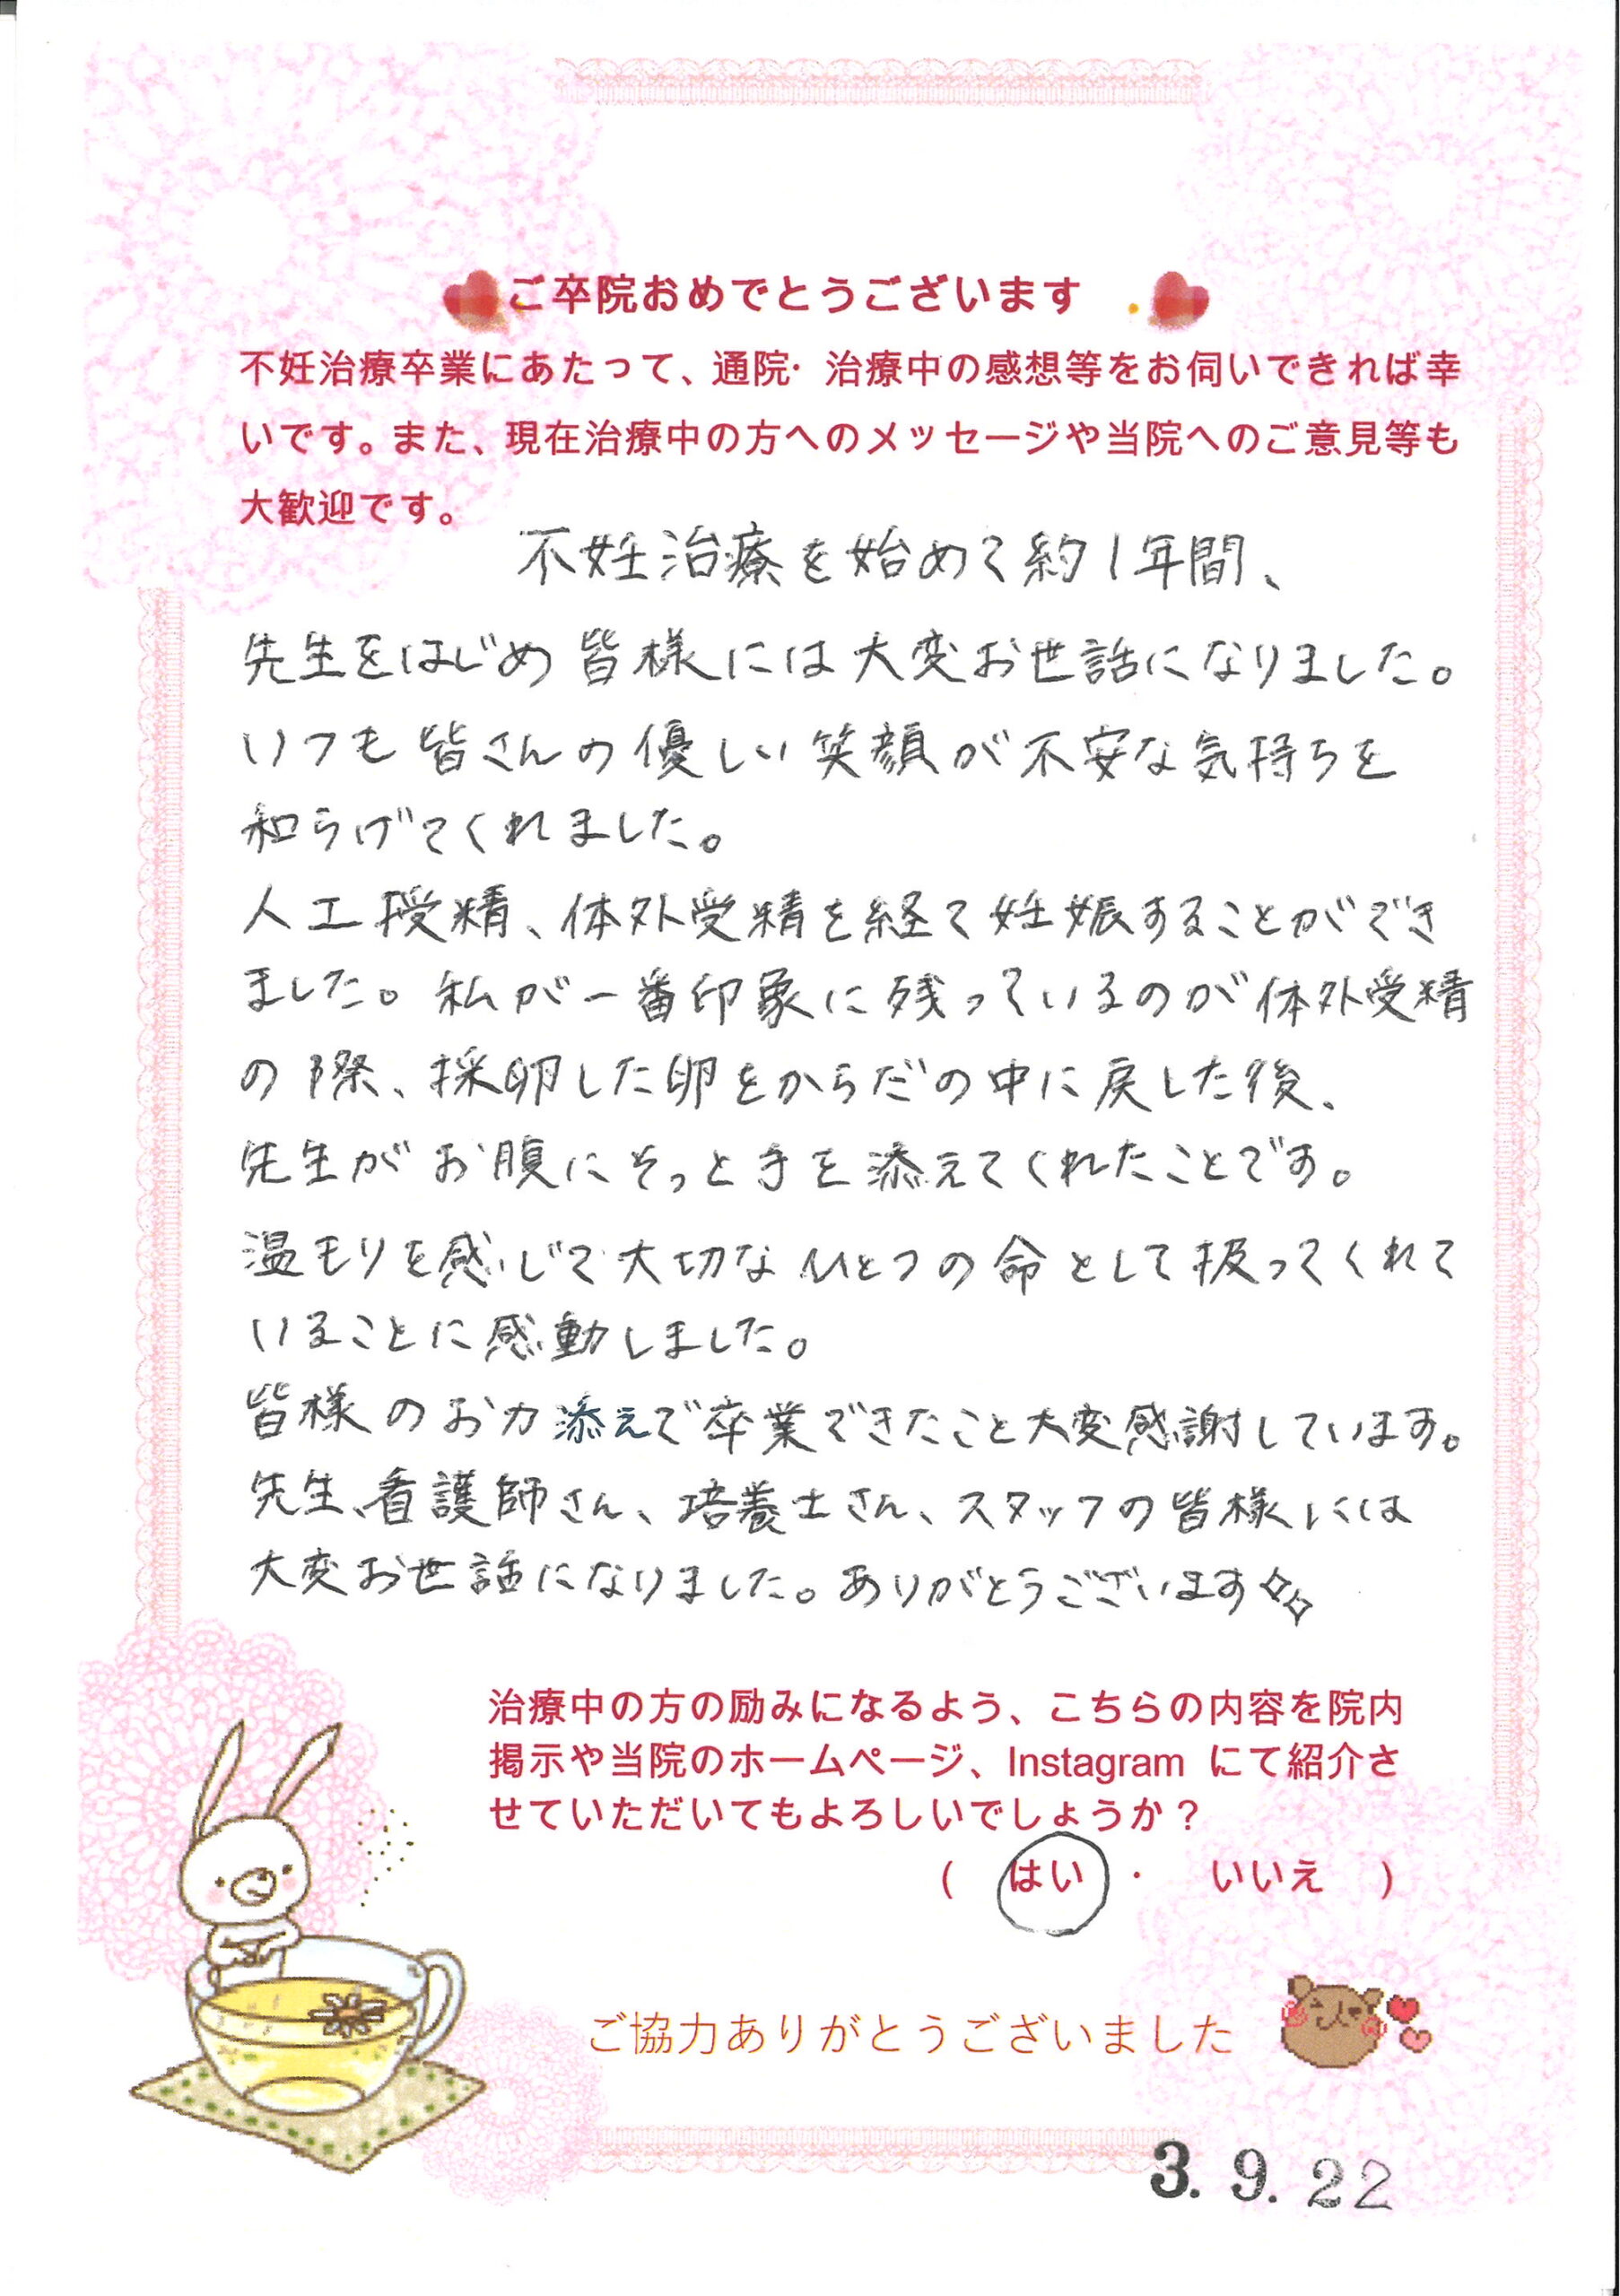 ご卒院おめでとうございます
不妊治療卒業にあたって、通院・治療中の感想等をお伺いできれば幸
いです。また、現在治療中の方へのメッセージや当院へのご意見等も
大歓迎です。
不妊治療を始めて約1年間、
先生をはじめ皆様には大変お世話になりました。
いつも皆さんの優しい笑顔が不安な気持ちを
和らげてくれました。
人工授精、体外受精を経て妊娠することができ
ました。私が一番印象に残っているのが体外受精
の際、採卵した卵をからだの中に戻した後、
先生がお腹にそっと手を添えてくれたことです。
温もりを感じて大切なひとつの命として扱ってくれて
いることに感動しました。
皆様のお力添えで卒業できたこと大変感謝しています。
先生、看護師さん、培養士さん、スタッフの皆様には
大変お世話になりました。ありがとうございます
治療中の方の励みになるよう、こちらの内容を院内
掲示や当院のホームページ、Instagram にて紹介さ
せていただいてもよろしいでしょうか？
( はい ・ いいえ )
ご協力ありがとうございました
3. 9. 22